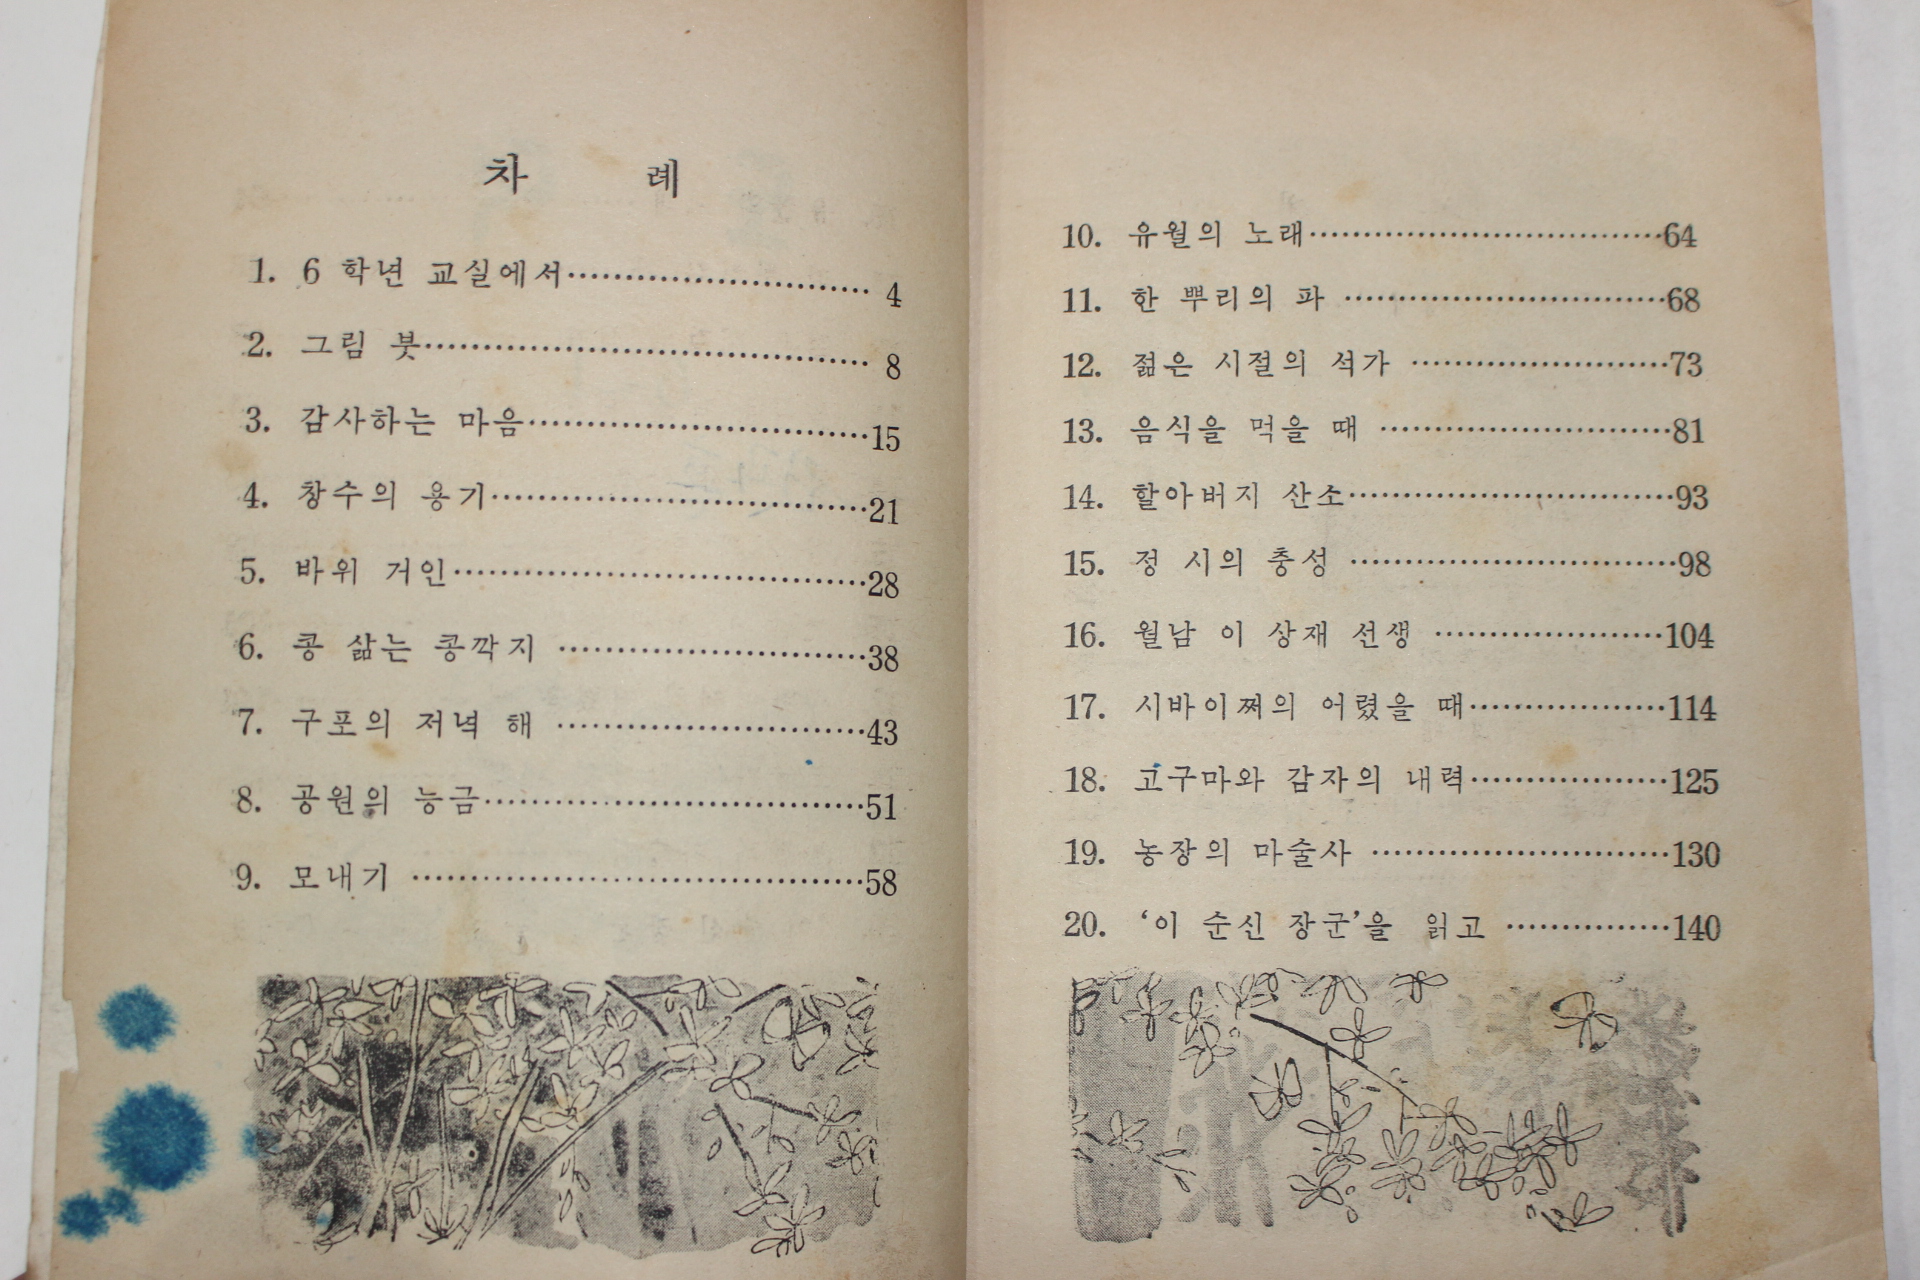 차 례
1. 6 학년 교실에서 4
2. 그림 붓 8
3. 감사하는 마음 15
4. 창수의 용기 21
5. 바위 거인 28
6. 콩 삶는 콩깍지 38
7. 구포의 저녁 해 43
8. 공원의 능금 51
9. 모내기 58
10. 유월의 노래 64
11. 한 뿌리의 파 68
12. 젊은 시절의 석가 73
13. 음식을 먹을 때 81
14. 할아버지 산소 93
15. 정 시의 충성 98
16. 월남 이 상재 선생 104
17. 시바이쩌의 어렸을 때 114
18. 고구마와 감자의 내력 125
19. 농장의 마술사 130
20. ‘이 순신 장군’을 읽고 140